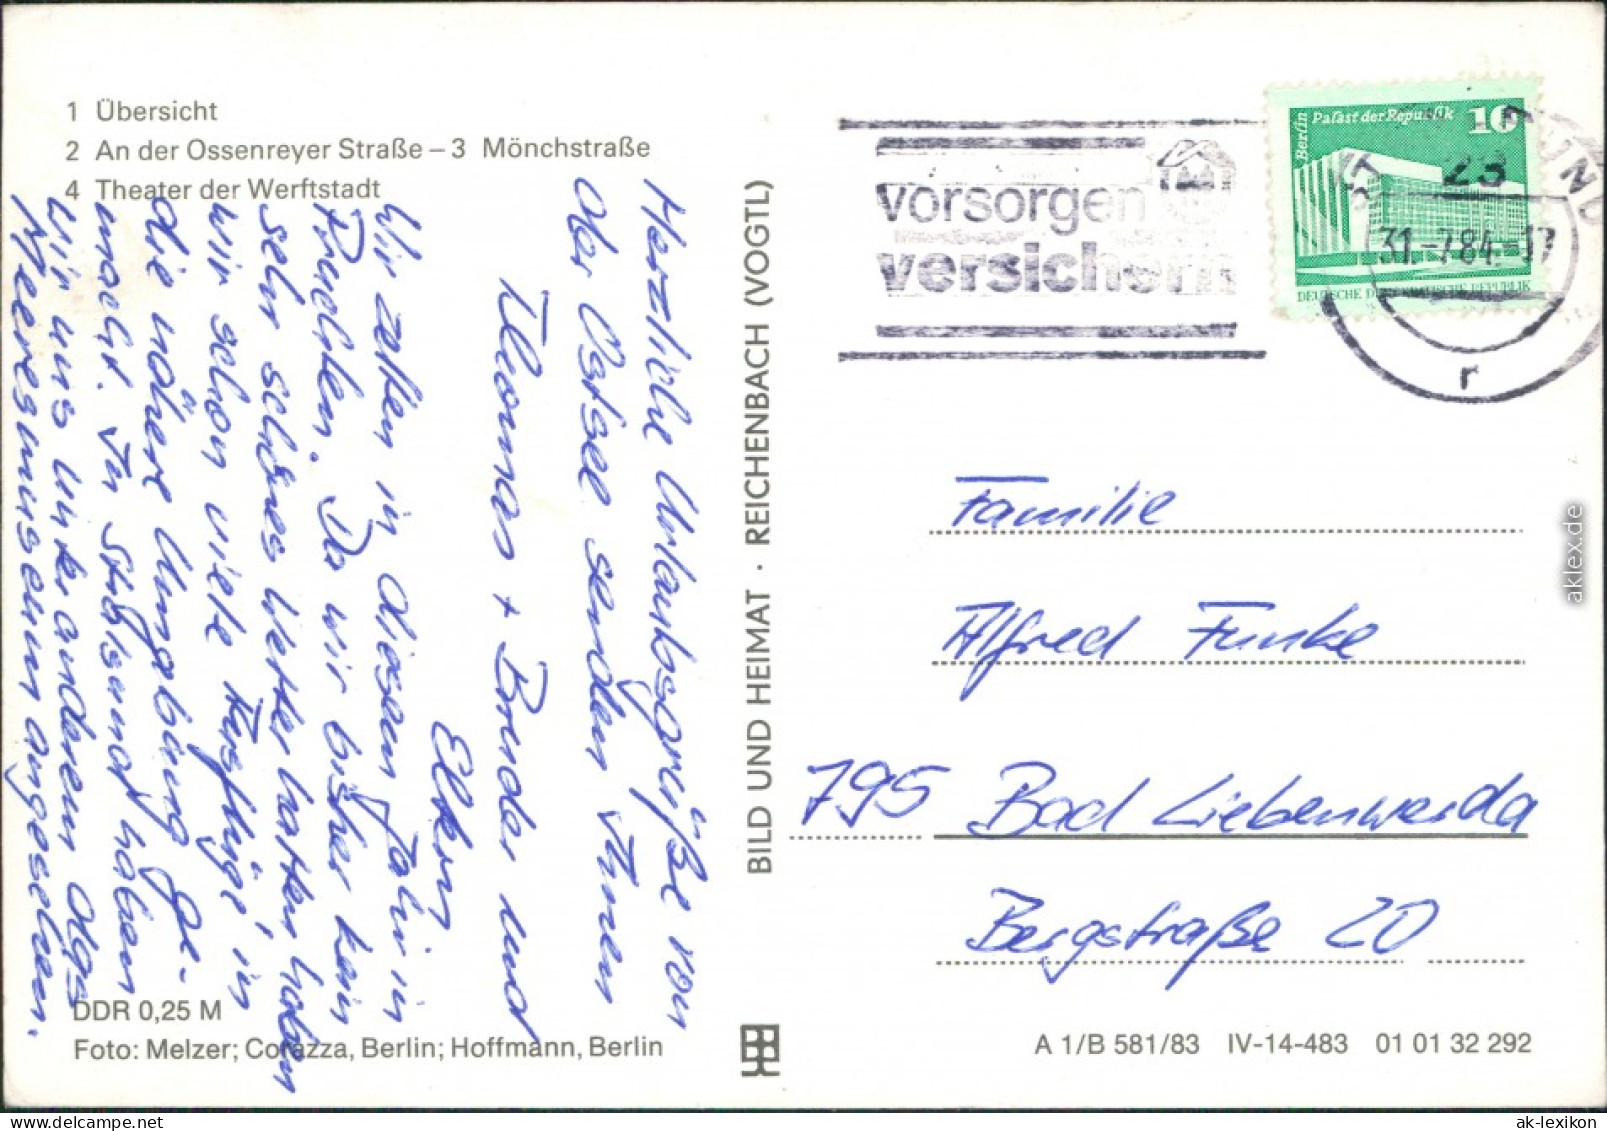 1 Übersicht
2 An der Ossenreyer Straße – 3 Mönchstraße
4 Theater der Werftstadt
Herzliche Urlaubsgrüße von
der Ostsee senden Ihnen
Thomas + Bruder und
Eltern
Wir zelten in diesem Jahr in
Pruchten. Da wir bisher kein
sehr schönes Wetter hatten, haben
wir schon viele Ausflüge in
die nähere Umgebung ge-
macht. In Stralsund haben
wir uns unter anderem das
Meeresmuseum angesehen.
DDR 0,25 M
Foto: Melzer; Corazza, Berlin; Hoffmann, Berlin
BILD UND HEIMAT · REICHENBACH (VOGTL)
vorsorgen
versichern
Berlin
Palast der Republik
10
DEUTSCHE DEMOKRATISCHE REPUBLIK
23
31.-7.84.-17
r
Familie
Alfred Funke
795 Bad Liebenwerda
Bergstraße 20
A 1/B 581/83 IV-14-483 01 01 32 292
aklex.de
ak-lexikon